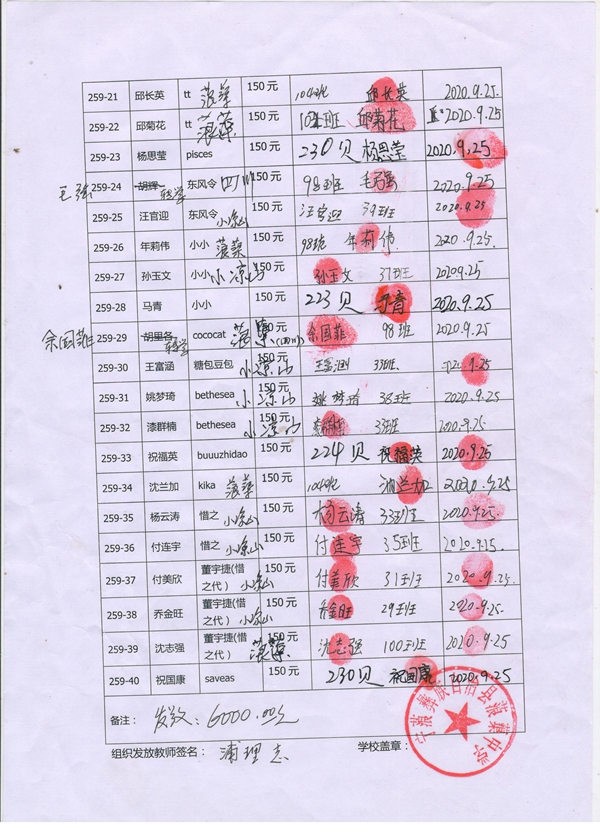 259-21 邱长英 tt 蒗蕖 150元 104班 邱长英 2020.9.25.
259-22 邱菊花 tt 蒗蕖 150元 102班 邱菊花 2020.9.25
259-23 杨思莹 pisces 150元 230贝 杨思莹 2020.9.25
王强 259-24 胡辉 转学 东风令 四川 150元 98班 2020.9.25
259-25 汪官迎 东风令 小凉山 150元 汪官迎 39班 2020.9.25
259-26 年莉伟 小小 蒗蕖 150元 98班 年莉伟 2020.9.25.
259-27 孙玉文 小小 小凉山 150元 孙玉文 37班 2020.9.25
259-28 马青 小小 150元 223贝 马青 2020.9.25
余国菲 259-29 胡里各 转学 cococat 蒗蕖 150元 余国菲 98班 2020.9.25
259-30 王富涵 糖包豆包 小凉山 150元 王富涵 33班. 2020.9.25
259-31 姚梦琦 bethesea 小凉山 150元 姚梦琦 38班 2020.9.25.
259-32 漆群楠 bethesea 小凉山 150元 33班 2020.9.25
259-33 祝福英 buuuzhidao 150元 224贝 祝福英 2020.9.25
259-34 沈兰加 kika 蒗蕖 150元 104班 沈兰加 2020.9.25
259-35 杨云涛 惜之 小凉山 150元 杨云涛 33班 2020.9.25
259-36 付连宇 惜之 小凉山 150元 付连宇 35班 2020.9.25.
259-37 付美欣 董宇捷(惜之代) 小凉山 150元 付美欣 31班 2020.9.25
259-38 乔金旺 董宇捷(惜之代) 小凉山 150元 乔金旺 29班 2020.9.25
259-39 沈志强 董宇捷(惜之代) 蒗蕖 150元 沈志强 100班 2020.9.25
259-40 祝国康 saveas 150元 230贝 祝国康 2020.9.25
备注: 发放:6000.00元
组织发放教师签名: 浦理志 学校盖章:
宁蒗彝族自治县蒗蕖中学